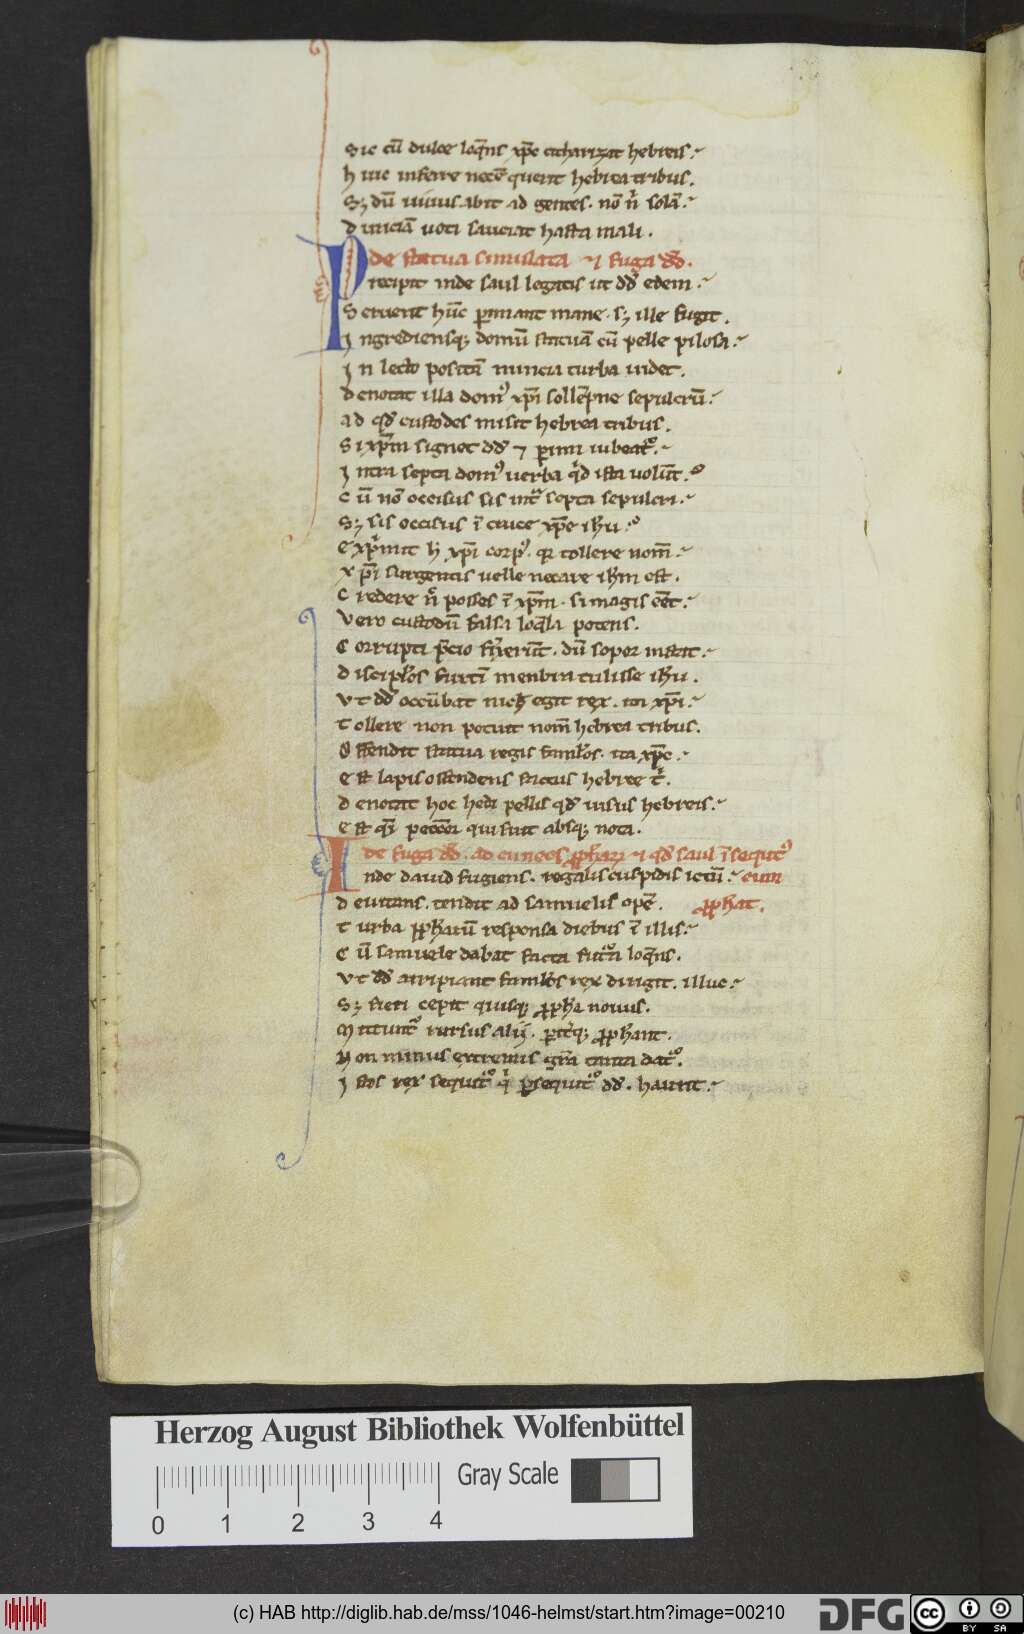 Sic cū dulce loq̄ns xp̄c citharizat hebreis
huic inferre necē querit hebrea tribus.
Sꝫ dū uiuus abit ad gentes. nō
Diuiciā uoti sauciat hasta mali.
de statua simulata ⁊ fuga dd̄.
Precipit inde saul legatis ut dd̄ edem
Seruent hūc ꝑimant mane. sꝫ ille fugit.
Ingrediensqꝫ domū statuā cū pelle pilosa
In lecto positā nuncia turba uidet.
Denotat illa domꝰ xp̄i sollēpne sepulcrū
Ad qd̄ custodes misit hebrea tribus.
Si xp̄m signet dd̄ ⁊ ꝑimi iubeatᷣ.
Intra septa domꝰ uerba qͥd ista uolūt.
Cū nō occisus sis intᷓ septa sepulcri
Sꝫ sis occisus ī cruce xp̄e ihu
Exp̄mit h̄ xp̄i corpꝰ. qꝛ tollere nom̄
Xp̄i surgentis uelle necare ihm est.
Credere posses ī xp̄m. si magis eēt
Vero custodū falsa loq̄la potens.
Corrupti p̄cio. dū sopor instat
Discipl̄os furtī menbra tulisse ihu.
Vt dd̄ occūbat nich̄ egit rex. ita xp̄i
Tollere non potuit nom̄ hebrea tribus.
Ostendit statua regis faml̄os. ita xp̄c
Est lapis ostendens factus hebree
Denotat hoc hedi pellis qd̄ uisus hebreis
Est peccēti qui fuit absqꝫ nota.
de fuga dd̄. ad cuneos ꝓph̄ari ⁊ qd̄ saul īsequitꝰ
Inde dauid fugiens. regalis cuspidis ictū eum
Deuitans. tendit ad samuelis opē. ꝓph̄at.
Turba ꝓph̄arū responsa diebus ī illis
Cū samuele dabat facta futᷓa loq̄ns.
Vt dd̄ arripiant faml̄os rex dirigit. illuc
Sꝫ fieri cepit quisqꝫ ꝓph̄a nouus.
Mittuntᷣ rursus alij. ꝑitᷣqꝫ ꝓph̄ant.
Non minus extremis gr̄a tanta datᷣ.
Istos rex sequitᷣ qͥ ꝑsequitᷣ dd̄. hauriit
Herzog August Bibliothek Wolfenbüttel
Gray Scale
0 1 2 3 4
(c) HAB http://diglib.hab.de/mss/1046-helmst/start.htm?image=00210
DFG
cc BY SA